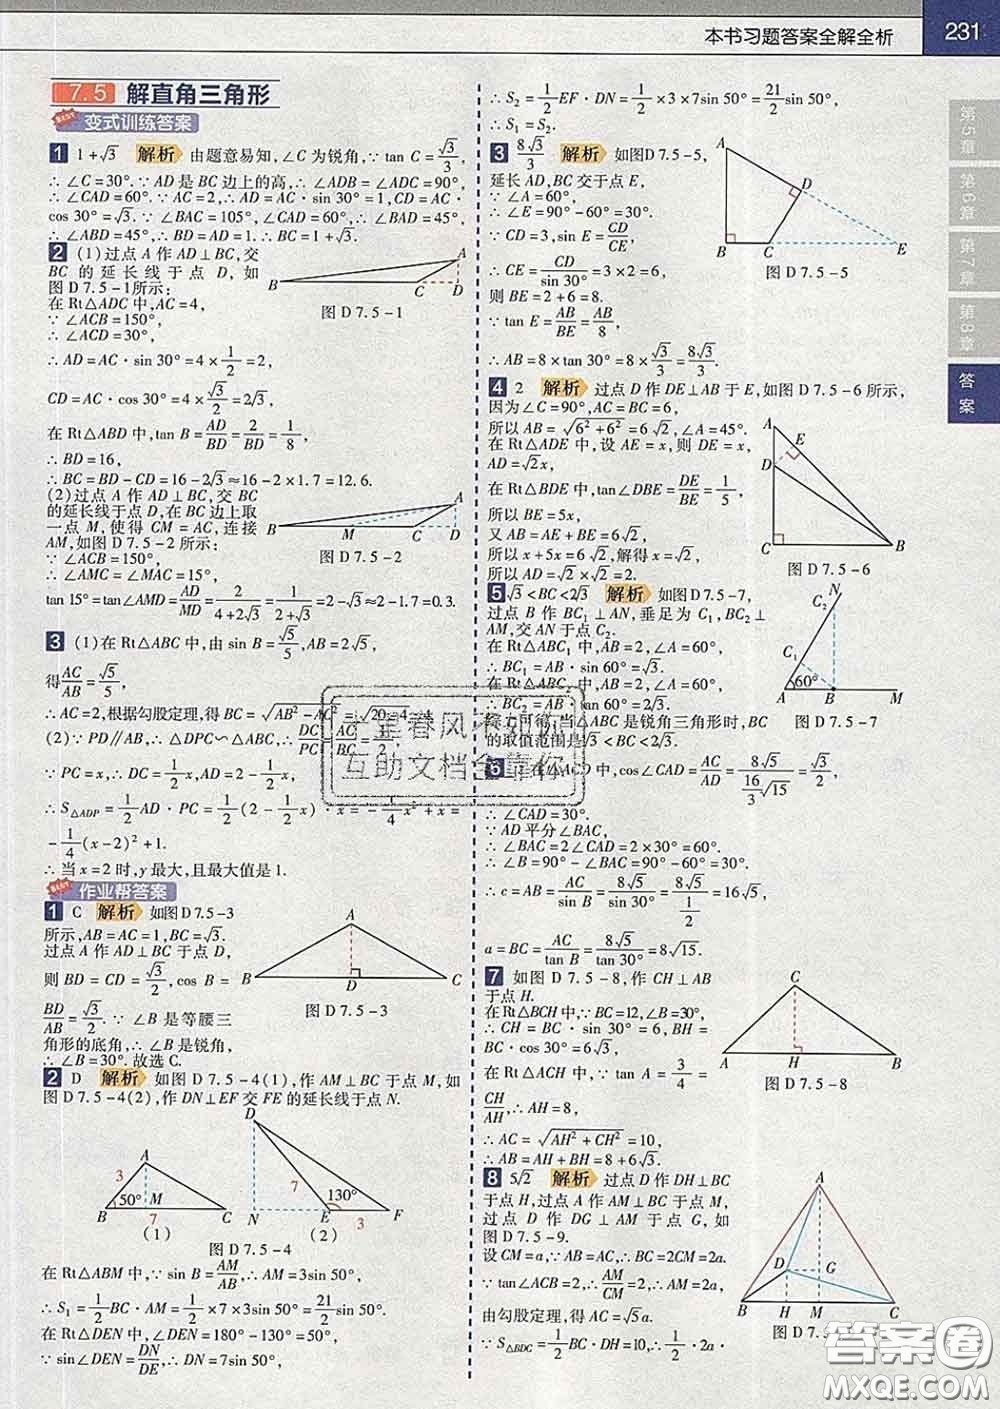 本书习题答案全解全析
231
7.5 解直角三角形
变式训练答案
1 1+√3 解析 由题意易知,∠C为锐角,∵tan C=√3/3,
∴∠C=30°.∵AD是BC边上的高,∴∠ADB=∠ADC=90°,
∴∠CAD=60°.∵AC=2,∴AD=AC·sin 30°=1,CD=AC·
cos 30°=√3.∵∠BAC=105°,∠CAD=60°,∴∠BAD=45°,
∴∠ABD=45°,∴BD=AD=1.∴BC=1+√3.
2 (1)过点A作AD⊥BC,交
BC的延长线于点D,如
图D7.5-1所示:
在Rt△ADC中,AC=4,
∵∠ACB=150°,
∴∠ACD=30°,
∴AD=AC·sin 30°=4×1/2=2,
CD=AC·cos 30°=4×√3/2=2√3,
在Rt△ABD中,tan B=AD/BD=2/BD=1/8,
∴BD=16,
∴BC=BD-CD=16-2√3≈16-2×1.7=12.6.
A B C D
图D7.5-1
(2)过点A作AD⊥BC,交BC
的延长线于点D,在BC边上取
一点M,使得CM=AC,连接
AM,如图D7.5-2所示:
∵∠ACB=150°,
∴∠AMC=∠MAC=15°,
tan 15°=tan∠AMD=AD/MD=2/(4+2√3)=1/(2+√3)=2-√3≈2-1.7=0.3.
A B M C D
图D7.5-2
3 (1)在Rt△ABC中,由sin B=√5/5,AB=2√5,
得AC/AB=√5/5,
∴AC=2,根据勾股定理,得BC=√(AB²-AC²)=√(20-4)
(2)∵PD∥AB,∴△DPC∽△ABC,∴DC/PC=AC/BC=2/
∵PC=x,∴DC=1/2x,AD=2-1/2x,
∴S△ADP=1/2AD·PC=1/2(2-1/2x)·x=-1/4x²+x=
-1/4(x-2)²+1.
∴当x=2时,y最大,且最大值是1.
作业帮答案
1 C 解析 如图D7.5-3
所示,AB=AC=1,BC=√3.
过点A作AD⊥BC于点D,
则BD=CD=√3/2,cos B=
BD/AB=√3/2.∵∠B是等腰三
角形的底角,∴∠B是锐角,
∴∠B=30°.故选C.
A B D C
图D7.5-3
2 D 解析 如图D7.5-4(1),作AM⊥BC于点M,如
图D7.5-4(2),作DN⊥EF交FE的延长线于点N.
A 3 50° M B 7 C
(1)
D 7 130° N E 3 F
(2)
图D7.5-4
在Rt△ABM中,∵sin B=AM/AB,
∴S₁=1/2BC·AM=1/2×7×3sin 50°=21/2sin 50°.
在Rt△DEN中,∠DEN=180°-130°=50°,
∵sin∠DEN=DN/DE,∴DN=7sin 50°,
∴S₂=1/2EF·DN=1/2×3×7sin 50°=21/2sin 50°,
∴S₁=S₂.
3 8√3/3 解析 如图D7.5-5,
延长AD,BC交于点E,
∵∠A=60°,
∴∠E=90°-60°=30°.
∵CD=3,sin E=CD/CE,
∴CE=CD/sin 30°=3×2=6,
则BE=2+6=8.
∵tan E=AB/BE=AB/8,
∴AB=8×tan 30°=8×√3/3=8√3/3.
A D B C E
图D7.5-5
4 2 解析 过点D作DE⊥AB于E,如图D7.5-6所示,
因为∠C=90°,AC=BC=6,
所以AB=√(6²+6²)=6√2,∠A=45°.
在Rt△ADE中,设AE=x,则DE=x,
AD=√2x,
在Rt△BDE中,tan∠DBE=DE/BE=1/5,
所以BE=5x,
又AB=AE+BE=6√2,
所以x+5x=6√2,解得x=√2,
所以AD=√2×√2=2.
A E D C B
图D7.5-6
5 √3<BC<2√3 解析 如图D7.5-7,
过点B作BC₁⊥AN,垂足为C₁,BC₂⊥
AM,交AN于点C₂.
在Rt△ABC₁中,AB=2,∠A=60°,
∴BC₁=AB·sin 60°=√3.
在Rt△ABC₂中,AB=2,∠A=60°,
∴BC₂=AB·tan 60°=2√3.
可得,当△ABC是锐角三角形时,BC
的取值范围是√3<BC<2√3.
N C₂ C₁ 60° A B M
图D7.5-7
6 在△ACD中,cos∠CAD=AC/AD=8√5/(16/3√15)=√3/2,
∴∠CAD=30°.
∵AD平分∠BAC,
∴∠BAC=2∠CAD=60°,
∴∠B=90°-∠BAC=90°-60°=30°,
∴c=AB=AC/sin B=8√5/sin 30°=8√5/(1/2)=16√5,
a=BC=AC/tan B=8√5/tan 30°=8√15.
7 如图D7.5-8,作CH⊥AB
于点H.
在Rt△BCH中,∵BC=12,∠B=30°,
∴CH=BC·sin 30°=6,BH=
BC·cos 30°=6√3,
在Rt△ACH中,∵tan A=3/4=
CH/AH,∴AH=8,
∴AC=√(AH²+CH²)=10,
∴AB=AH+BH=8+6√3.
C A H B
图D7.5-8
8 5√2 解析 过点D作DH⊥BC
于点H,过点A作AM⊥BC于点M,
过点D作DG⊥AM于点G,如
图D7.5-9.
设CM=a,∵AB=AC,∴BC=2CM=2a.
∵tan∠ACB=2,∴AM/CM=2,∴AM=2a,
由勾股定理,得AC=√5a.
∵S△BDC=1/2BC·DH=10,∴1/2·2a·
A D G B H M C
图D7.5
第5章
第6章
第7章
第8章
答案
春风不如你
互助文档全靠你
答案圈
MXQE.COM